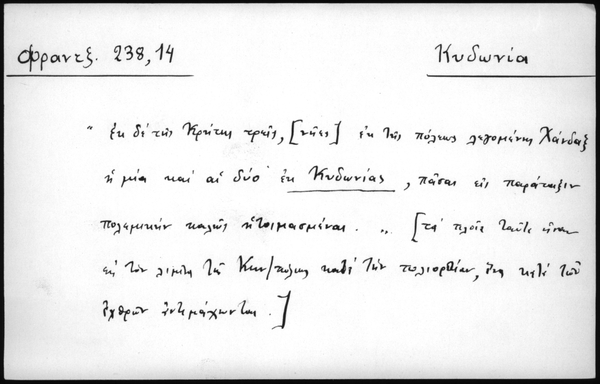 Φραντζ. 238,14
Κυδωνία
" ἐκ δὲ τῆς Κρήτης τρεῖς, [νῆες] ἐκ τῆς πόλεως λεγομένης Χάνδαξ
ἡ μία καὶ αἱ δύο ἐκ Κυδωνίας, πᾶσαι εἰς παράταξιν
πολεμικὴν καλῶς ἡτοιμασμέναι. „ [τὰ πλοῖα ταῦτα ἦσαν
εἰς τὸν λιμένα τῆς Κων/πόλεως κατὰ τὴν πολιορκίαν, κατὰ τῶν
ἐχθρῶν .]